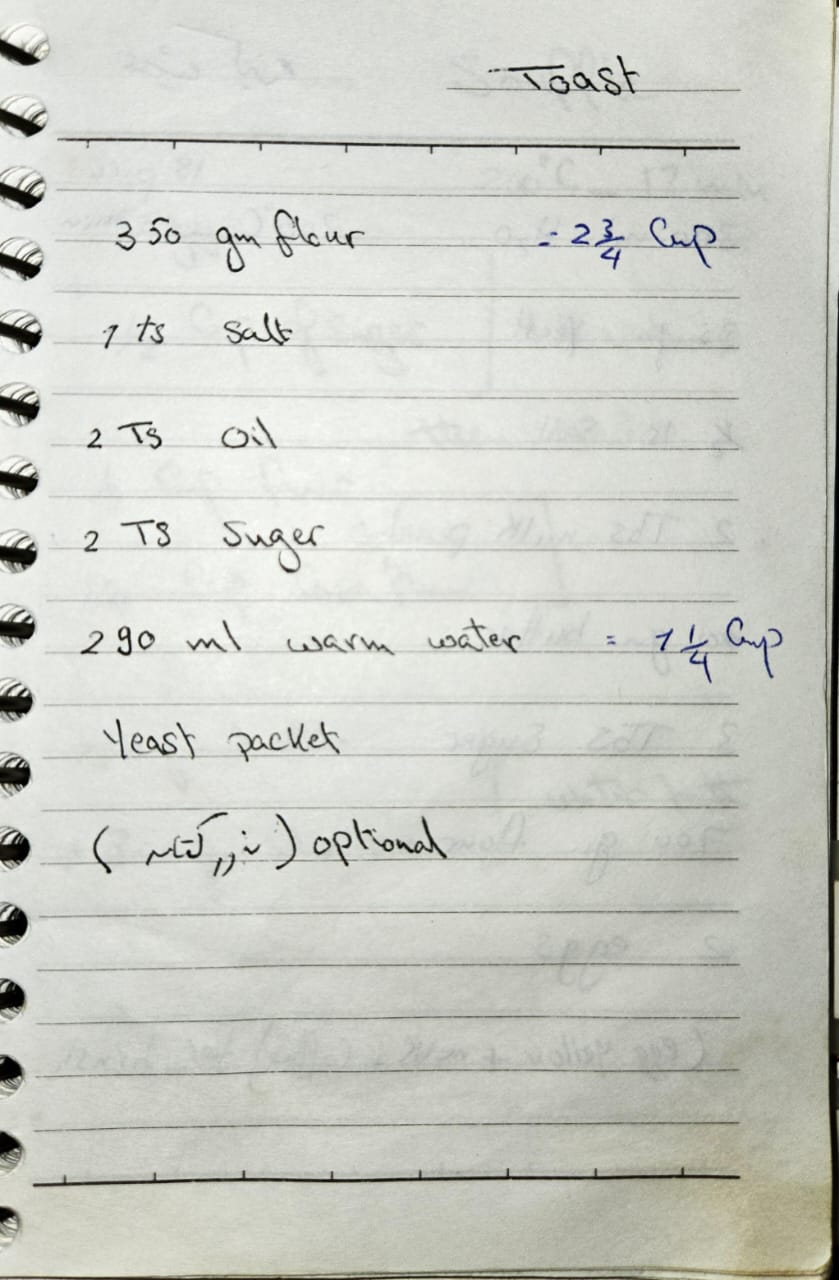 Toast
350 gm flour = 2 3/4 Cup
1 ts salt
2 Ts Oil
2 Ts Suger
290 ml warm water = 1 1/4 Cup
Yeast packet
( ) optional